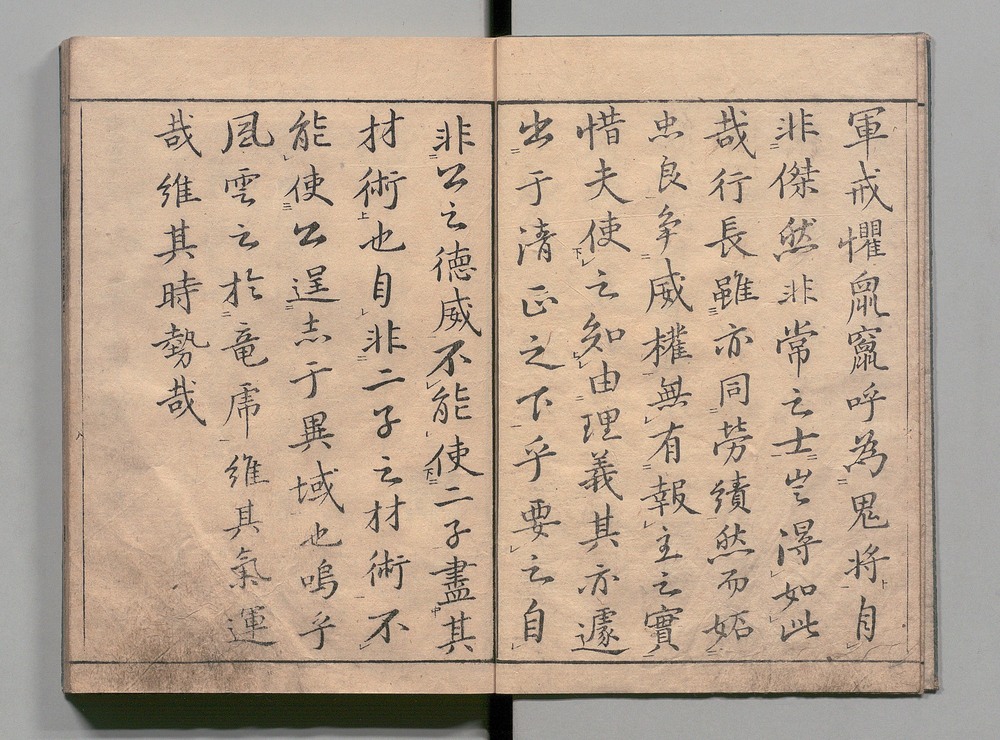 軍戒懼鼠竄呼為鬼将自
非傑然非常之士豈得如此
哉行長雖亦同勞績然而妬
忠良争威權無有報主之實
惜夫使之知由理義其亦遽
出于清正之下乎要之自
非公之德威不能使二子盡其
材術也自非二子之材術不
能使公逞志于異域也嗚乎
風雲之於竜虎維其氣運
哉維其時勢哉